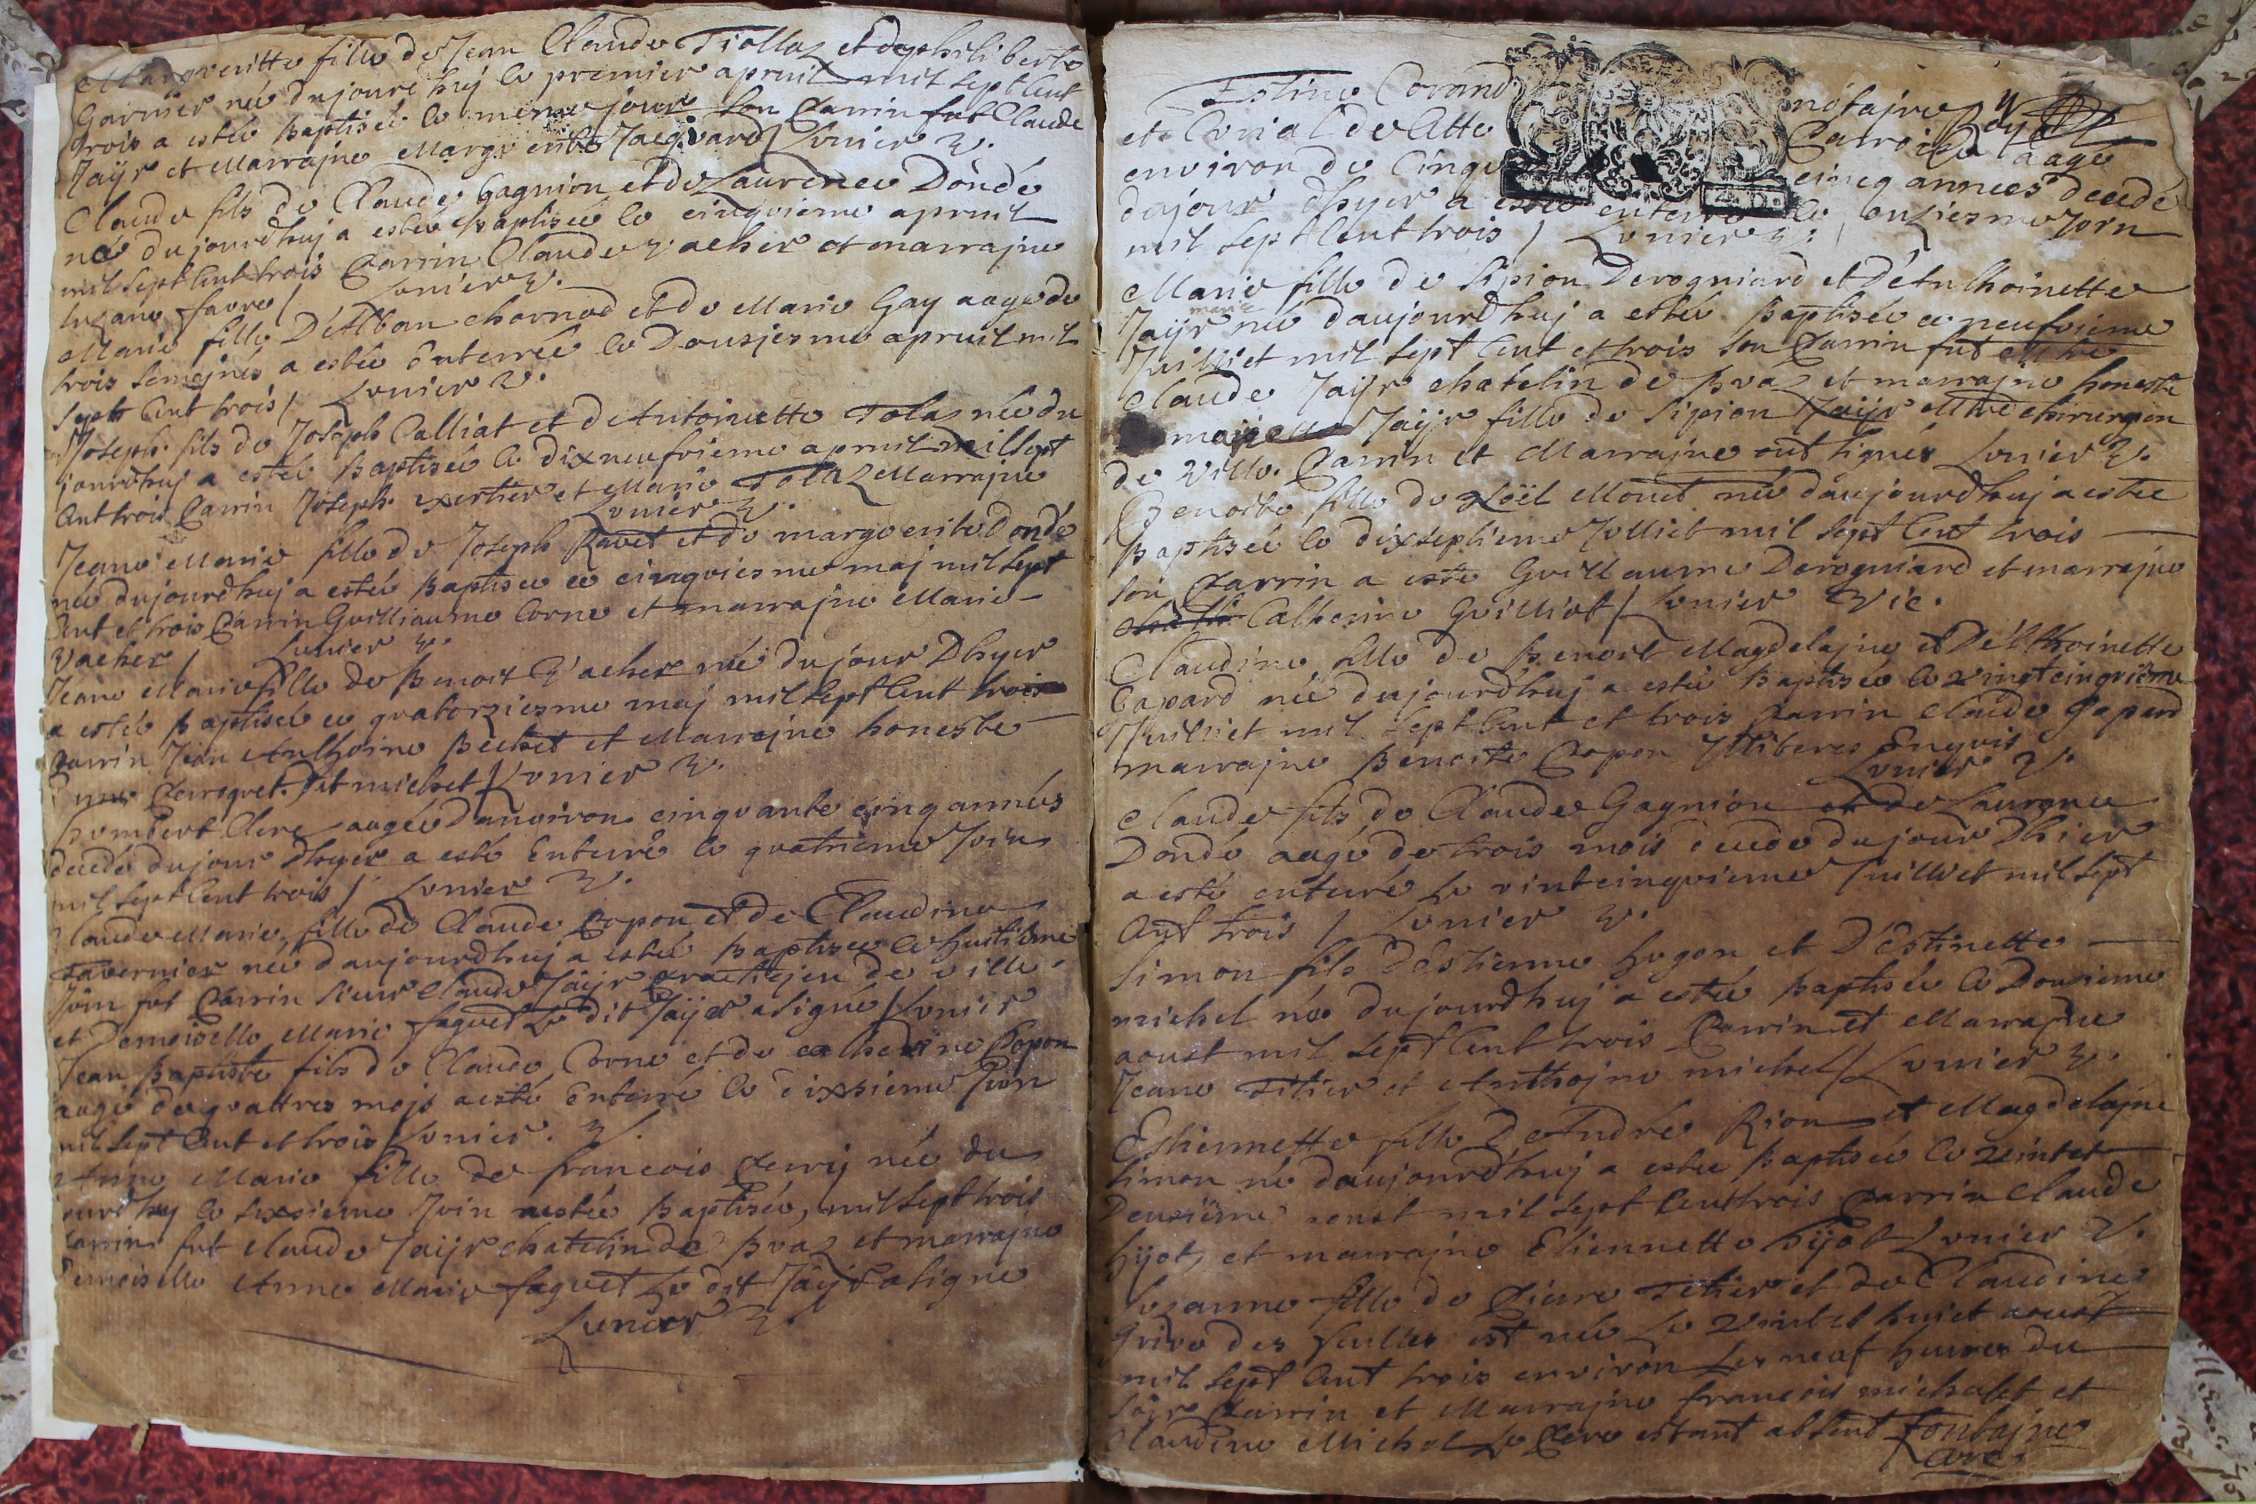 Margueritte fille de Jean Claude Tiollaz et de philiberte
Garnier née dujourdhuj le premier apruil mil sept Cent
trois a estée Baptisée le meme jour son Parrin fut Claude
Jaÿr et Marrajne Marguerite Jacquard / Lunier V.
Claude fils de Claude Gagnion et de Laurence Dondé
née dujourdhuj a estée Baptisée le cinqvieme apruil
mil sept Cent trois Parrin Claude Vacher et marrajne
Suzane favre / Lunier V.
Marie fille D'Alban chornod et de Marie Gay aagée de
trois semejnes a estée Enterrée le Dousiesme apruil mil
sept Cent trois / Lunier V.
Joseph fils de Joseph Calliat et d'Antoinette Tolaz née du
jourdhuj a estée Baptisée le dixneufvieme apruil mil sept
Cent trois Parrin Joseph exertier et Marie Tollaz Marrajne
Lunier V.
Jeane Marie fille de Joseph Ravet et de marguerite Dondé
née dujourdhuj a estée Baptisée ce cinqviesme maj mil sept
Cent et trois Parrin Guilliaume Corne et marrajne Marie
Vacher / Lunier V.
Jeane Marie fille de Benoit Vacher née du jour Dhyer
a estée Baptisée ce quatorziesme maj mil sept Cent trois
Parrin Jean Anthoine Bechet et Marrajne honeste
Perroquet dit michet / Lunier V.
humbert Clerc aagée d'anviron cinquante cinq années
decedé dujour dhyer a esté Enterré le quatrieme Juin
mil sept Cent trois / Lunier V.
Claude Marie, fille de Claude Copon et de Claudine
Tavernier née daujourdhuj a estée Baptisée le huitième
Juin fut Parrin Sieur Claude Jaÿr praticjen de ville
et Demoiselle Marie faguet Le dit Jaÿr a signé / Lunier
Jean Baptiste fils de Claude Corne et de catherine Copon
aagé de quattres mojs a esté Enterré le dixsieme Juin
mil sept Cent et trois / Lunier. V.
Anne Marie fille de francois Perrij née du
jourdhuy le sixsieme Juin a estée Baptisée, mil sept trois
Parrin fut Claude Jaÿr chatelin de Bvaz et marrajne
Demoiselle Anne Marie faguet Le dit Jaÿr a signe
Lunier V.
Estine Corand notajre
et Curial de Atte Parroice aagé
environ de Cinqu cincq annees decedé
dujour dhyer a esté enterré le onziesme Jorn
mil sept Cent trois / Lunier V.
Marie fille de Sipion Derogniard et D'Anthoinette
marie
Jaÿr née daujourdhuj a estée Baptisée ce neufvieme
Juilliet mil sept Cent et trois son Parrin fut
Claude Jaÿr chatelin de Bvaz et marrajne honeste
Jaÿr fille de Sipion Jaijr Mtre chirurgien
de ville. Parrin et Marrajne ont signés Lunier V.
Benoite fille de Noël Monet née daujourdhuj a estée
Baptisée le dixseptieme Julliet mil sept Cent trois
son Parrin a este Guillaume Derogniard et marrajne
Catherine Guilliot / Lunier Vic.
Claudine fille de Benoit Magdelajne et D'Athoinette
Capard née dujourdhuj a estée Baptisée le vingtcinqvième
Juilliet mil sept Cent et trois Parrin Claude Gapard
marrajne Benoite Copon Illiberes Enquis
Lunier V.
Claude fils de Claude Gagnion et de Laurence
Dondé aagé de trois mois decede dujour Dhier
a esté enterré Le vintcinqvieme Juilliet mil sept
Cent trois / Lunier V.
Simon fils d'Estienne hugon et D'Estinette
michel née dujourdhuj a estée Baptisée le Dousieme
aoust mil sept Cent trois Parrin et Marrajne
Jeane Titier et Anthojne michel / Lunier V.
Estiennette fille D'Andre Rion et Magdelajne
Simon née daujourdhuj a estée Baptisée le vintet
Deuxième aoust mil sept Cent trois Parrin Claude
hijot, et marrajne Etiennette Tijot Lunier V.
Suzanne fille de Piere Titier et de Claudine
Grive des feuilles est née Le vintet huict aoust
mil sept Cent trois environ Les neuf heures du
soir Parrin et Marrajne francois michalet et
Claudine Michel Le Pere estant absent Fontajne
Curé